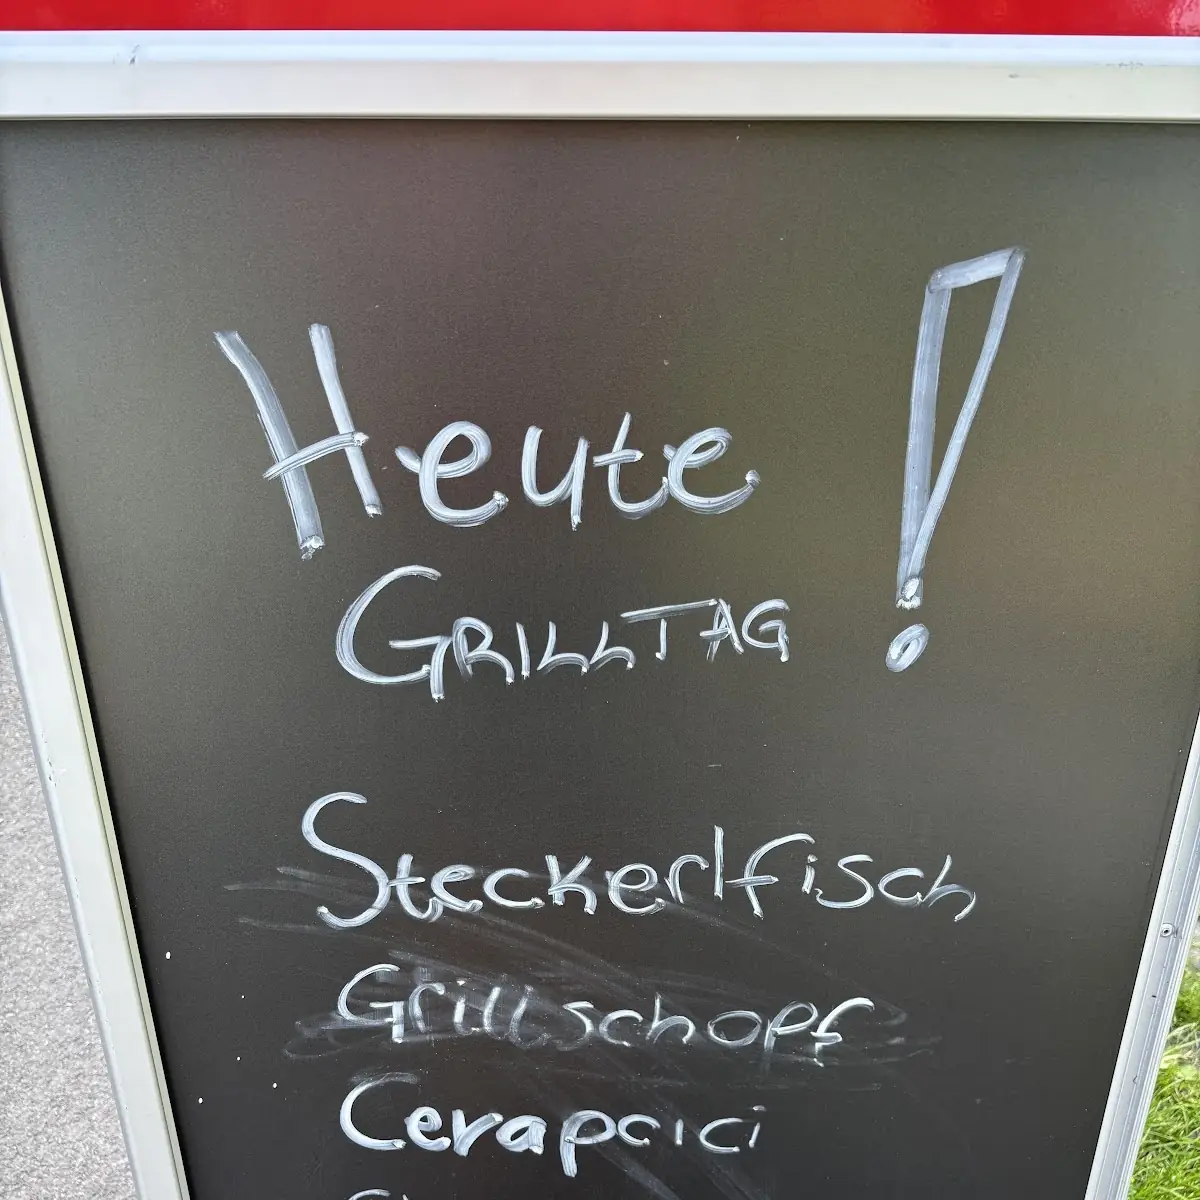 Heute !
GRILLTAG
Steckerlfisch
Grillschopf
Cerapcici